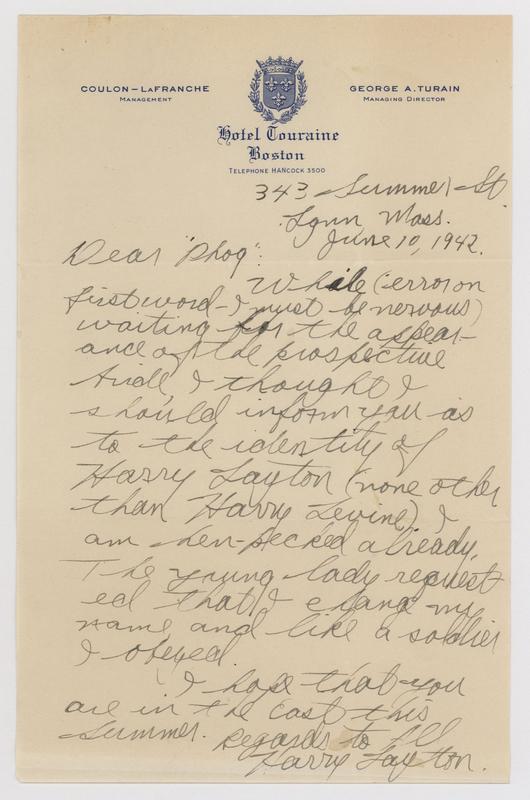 COULON–LAFRANCHE
MANAGEMENT
GEORGE A. TURAIN
MANAGING DIRECTOR
Hotel Touraine
Boston
TELEPHONE HANCOCK 3500
343 Summer St.
Lynn Mass.
June 10, 1942.
Dear "Phog":
While (error on
first word - I must be nervous)
waiting for the appear-
ance of the prospective
bride I thought I
should inform you as
to the identity of
Harry Layton (none other
than Harry Levine) I
am hen-pecked already.
The young lady request-
ed that I change my
name and like a soldier
I obeyed.
I hope that you
are in the east this
summer. Regards to all
Harry Layton.